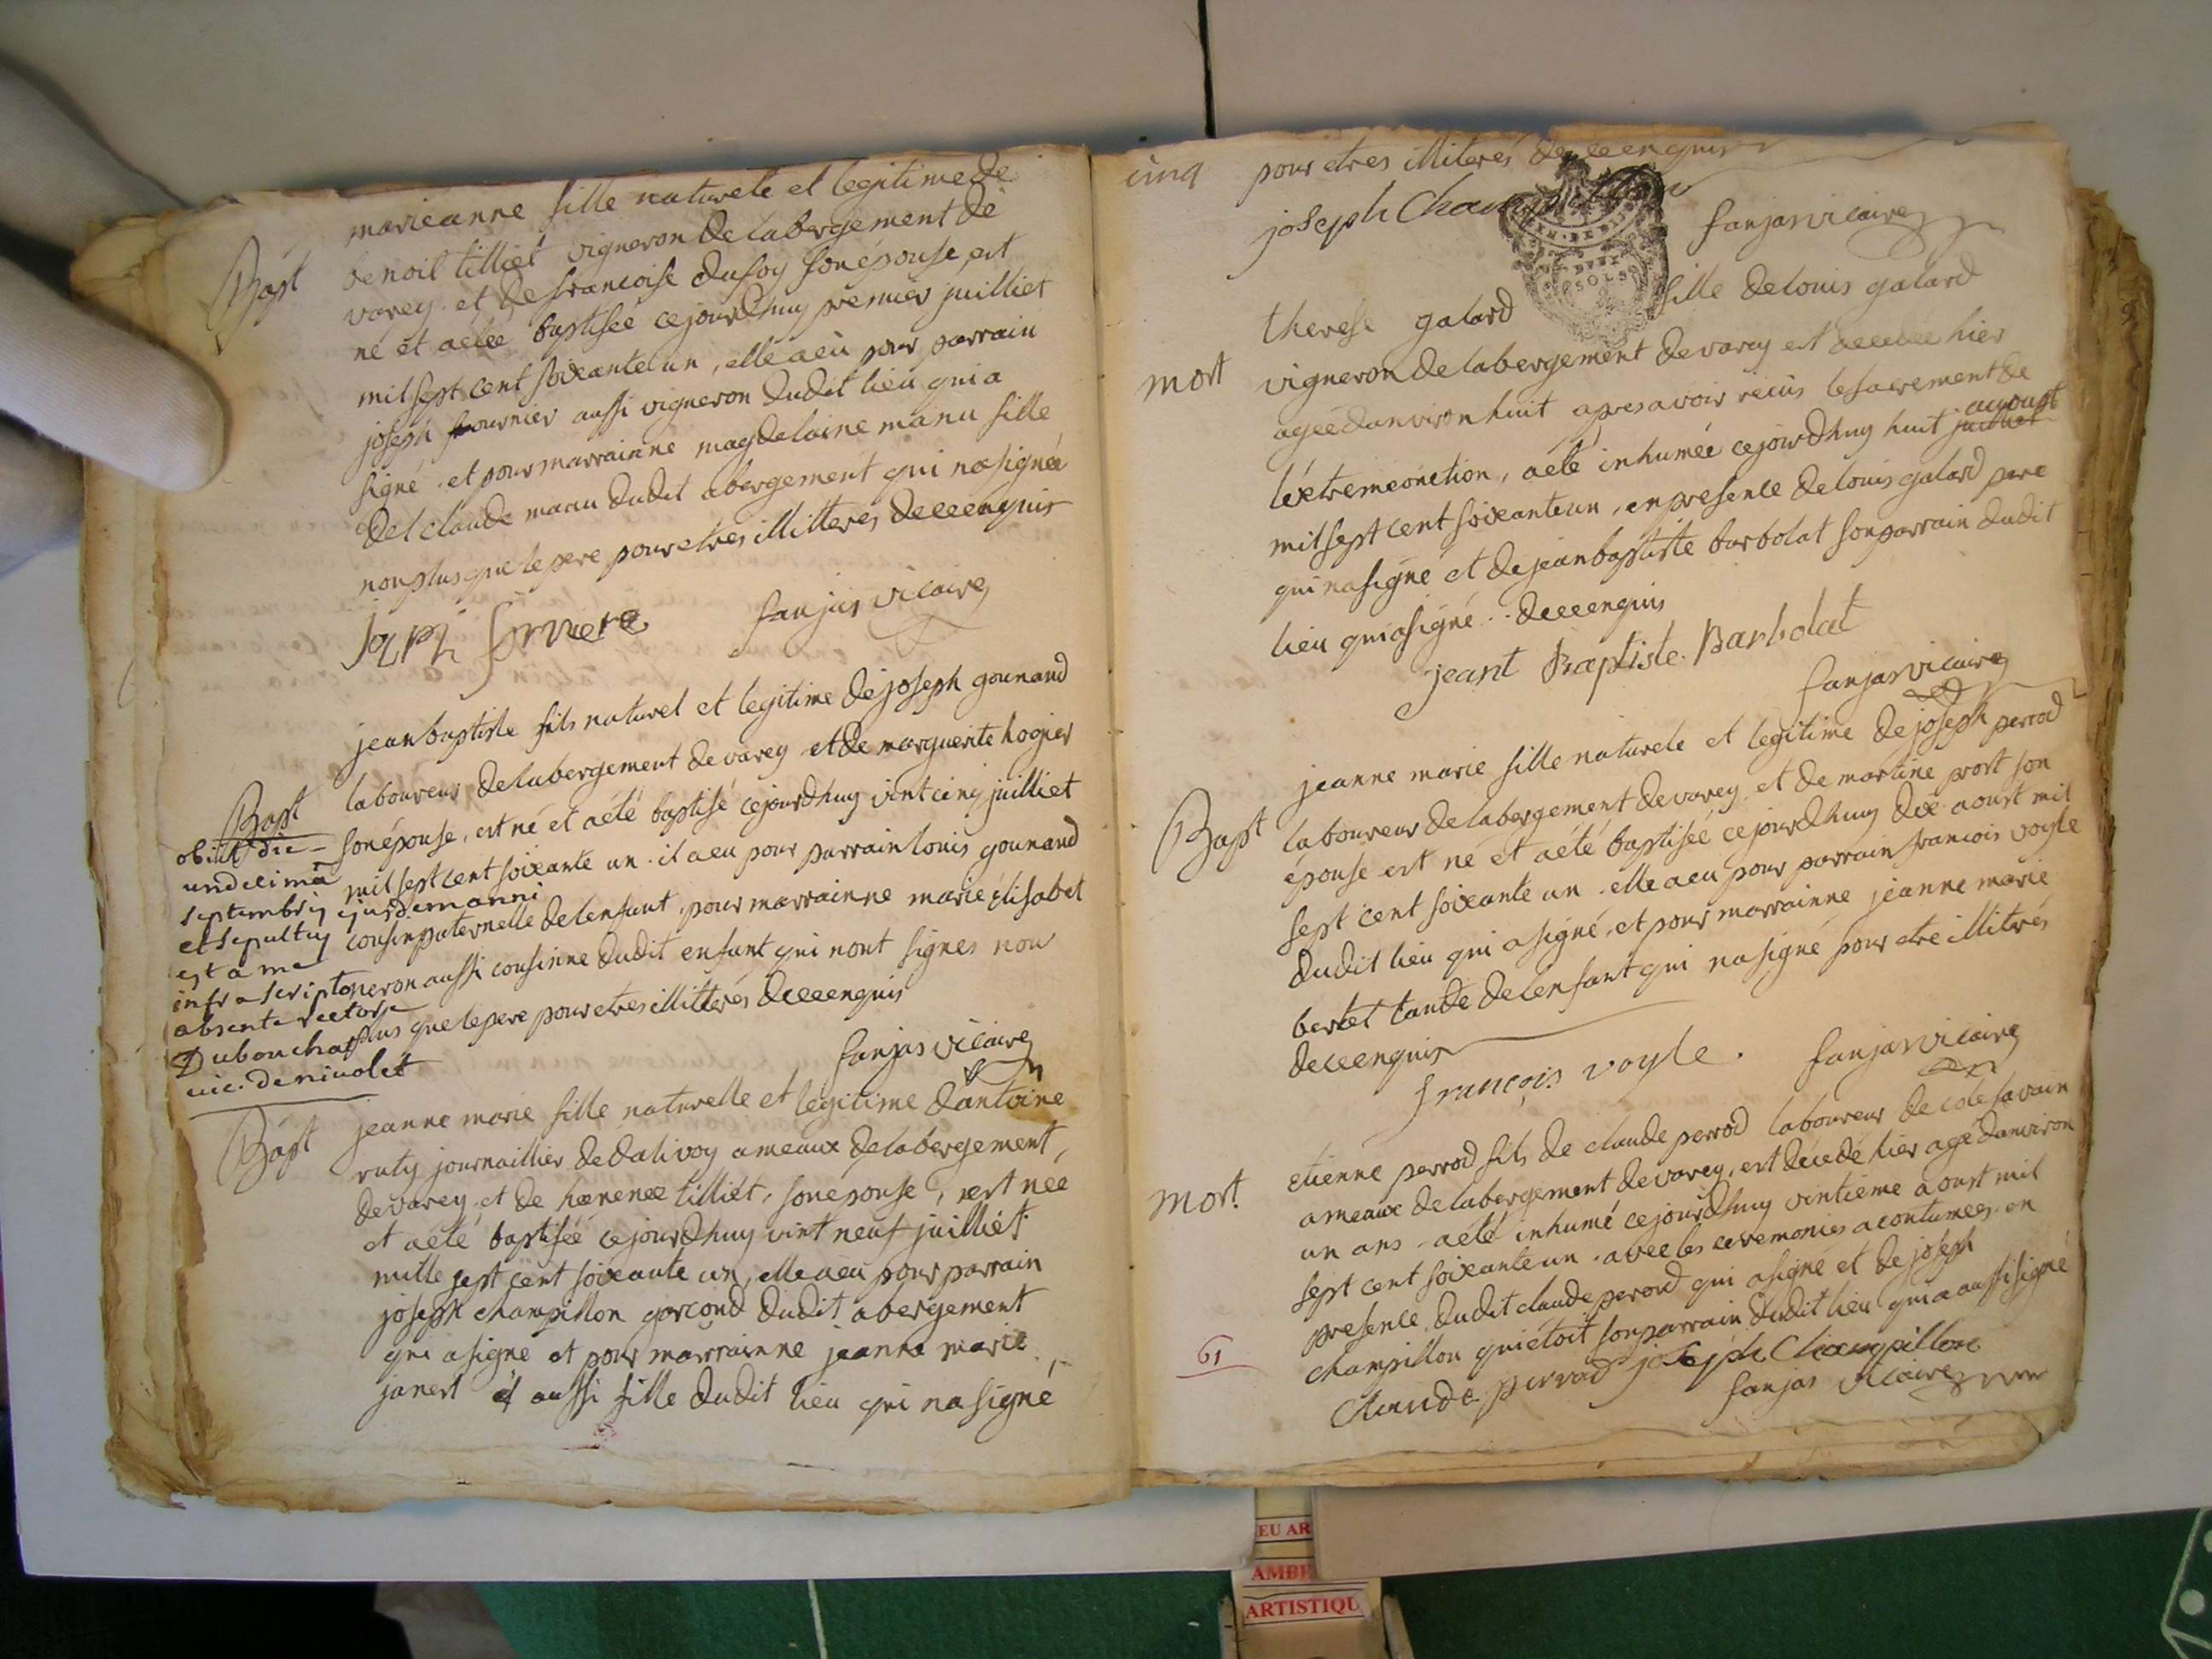 marieanne fille naturele et legitime de
Bapt
benoit tilliet vigneron de labergement de
varey et de francoise dufoy son épouse, est
né et aétée baptisée cejourdhuy premier juilliet
mil sept cent soixante un, elle a eü pour parrain
joseph fournier aussi vigneron dudit lieu qui a
signé. et pour marrainne magdelaine manu fille
claude manu dudit abergement qui na signée
non plus que le pere pour etres illitteres de ce enquis
fanjas vicaire
jean baptiste fils naturel et legitime de joseph gounand
laboureur delabergement de varey et de marguerite hogier
Bapt
son épouse, est né et aété baptisé cejourdhuy vint cinq juilliet
mil sept cent soixante un. il a eu pour parrain louis gounand
cousin paternelle de lenfant, pour marrainne marie élisabet
neron aussi cousinne dudit enfant qui nont signes non
plus que le pere pour etres illitterés de ce enquis
obiit die
undecima
septembris ejusdem anni
et sepultus
est a me
infra scripto
absente rectore
Dubouchat
vic. de nivolet
fanjas vicaire
Bapt
jeanne marie fille naturelle et legitime dantoine
ruty journaillier de dalivoy ameaux de labergement,
de varey et de tilliét, son epouse, est née
et aété baptiséé cejourdhuy vint neuf juilliét
mille sept cent soixante un, elle a eu pour parrain
joseph champillon garcond dudit abergement
qui a signé et pour marrainne jeanne marie
janest aussi fille dudit lieu qui na signé
cinq
pour etres illiterés de ce enquis
joseph Champillon
fanjas vicaire
therese galard fille de louis galard
mort
vigneron de labergement de varey est decedee hier
agée danviron huit apres avoir recus le sacrement de
léxtreme onction, aété inhumée cejourdhuy huit juilliet auoust
mil sept cent soixante un, en presence de louis galard pere
qui na signé et de jean baptiste barbolat son parrain dudit
lieu qui a signé. de ce enquis
jeant Baptiste Barbolat
fanjas vicaire
jeanne marie fille naturele et legitime de joseph perrod
Bapt
laboureur de labergement de varey et de martine prost son
épouse est né et aété baptiséé cejourdhuy dix aoust mil
sept cent soixante un elle a eu pour parrain francois voyle
dudit lieu qui a signé, et pour marrainne jeanne marie
bertet tante de lenfant qui na signé pour etre illitrés
de ce enquis
françois voyle.
fanjas vicaire
etienne perrod fils de claude perrod laboureur de cote savain
mort
ameaux de labergement de varey, est décédé hier agé danviron
un ans. aété inhumé cejourdhuy vintieme aoust mil
sept cent soixante un. avec les ceremonies acoutumees en
presence dudit claude perord qui a signé et de joseph
champillon qui étoit son parrain dudit lieu qui a aussi signé
61
Claude perrod joseph Champillon
fanjas vicaire
EU AR
AMBE
ARTISTIQU